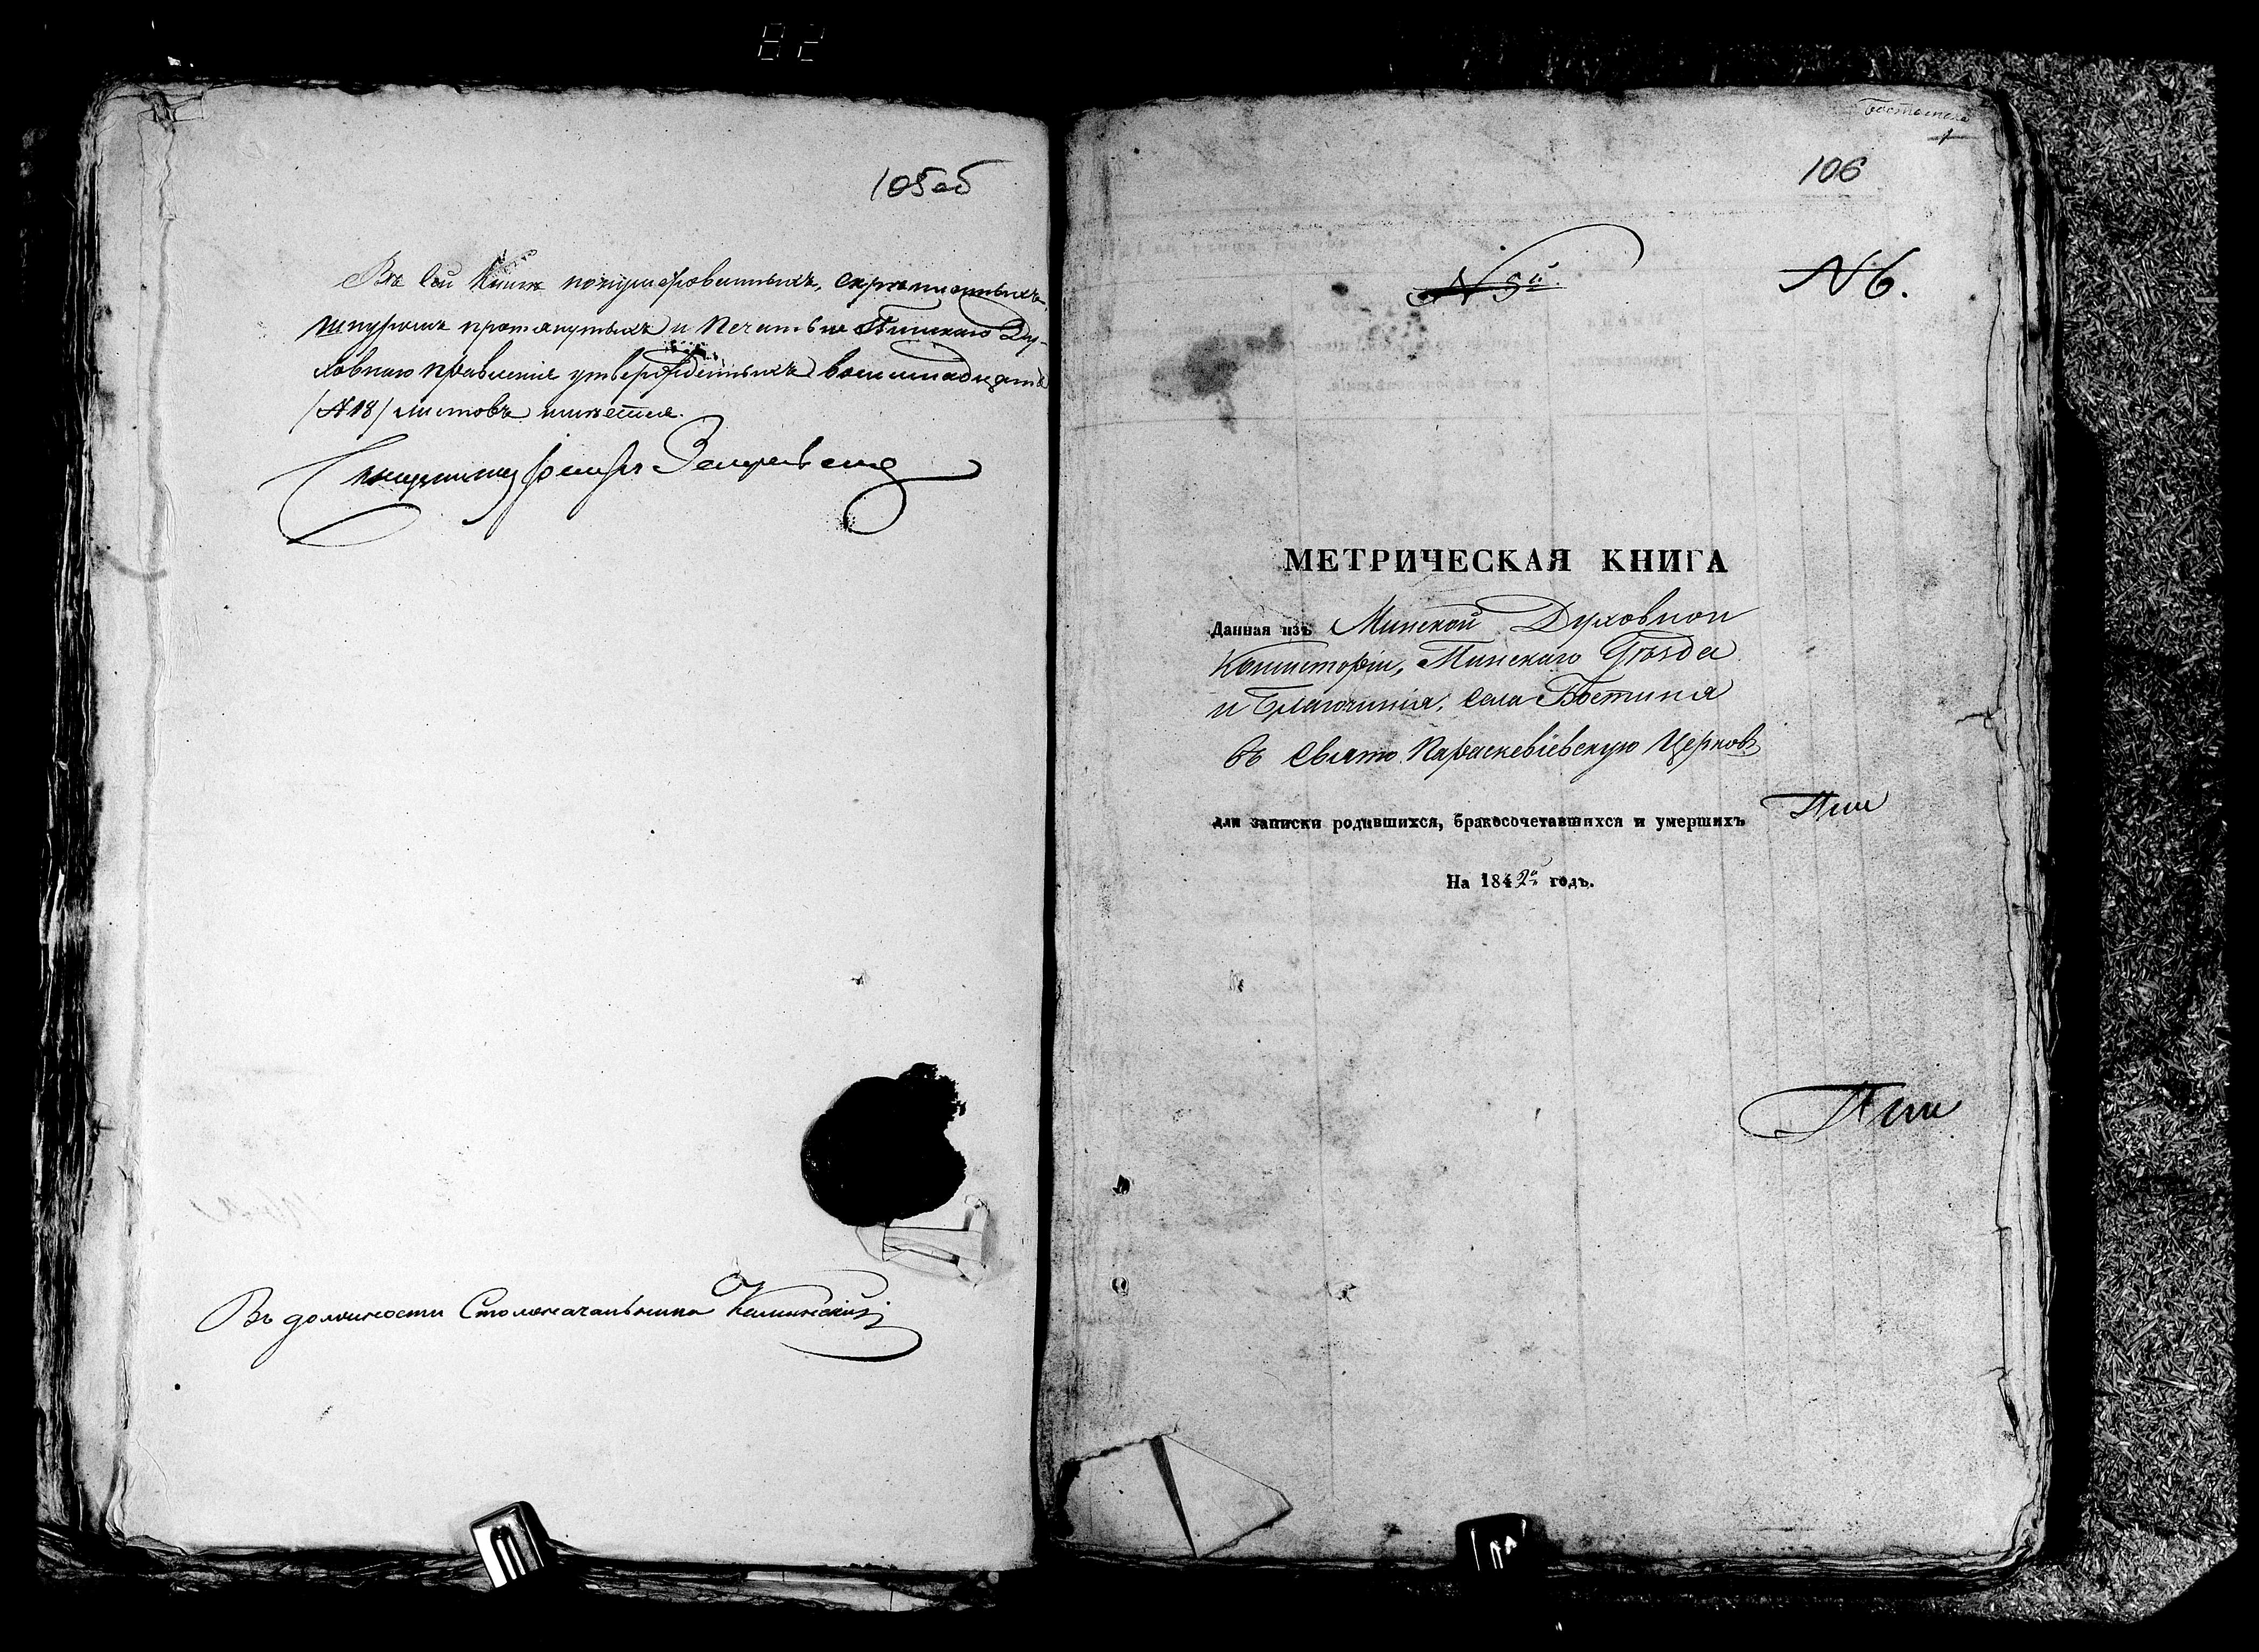 82
105об
Въ сей Книгѣ понумерованныхъ, скрепленныхъ,
шнуромъ протянутыхъ и печатью Пинскаго Ду-
ховнаго правленія утвержденныхъ восемнадцать
/№18/ листовъ имѣется.
Въ должности Столоначальника
106
№ 5й.
№ 6.
МЕТРИЧЕСКАЯ КНИГА
Данная изъ Минской Духовной
Консисторіи, Пинскаго Уѣзда
и Благочинія, села Бостыня
въ Свято Параскевіевскую Церковь
для записки родившихся, бракосочетавшихся и умершихъ
На 1842й годъ.